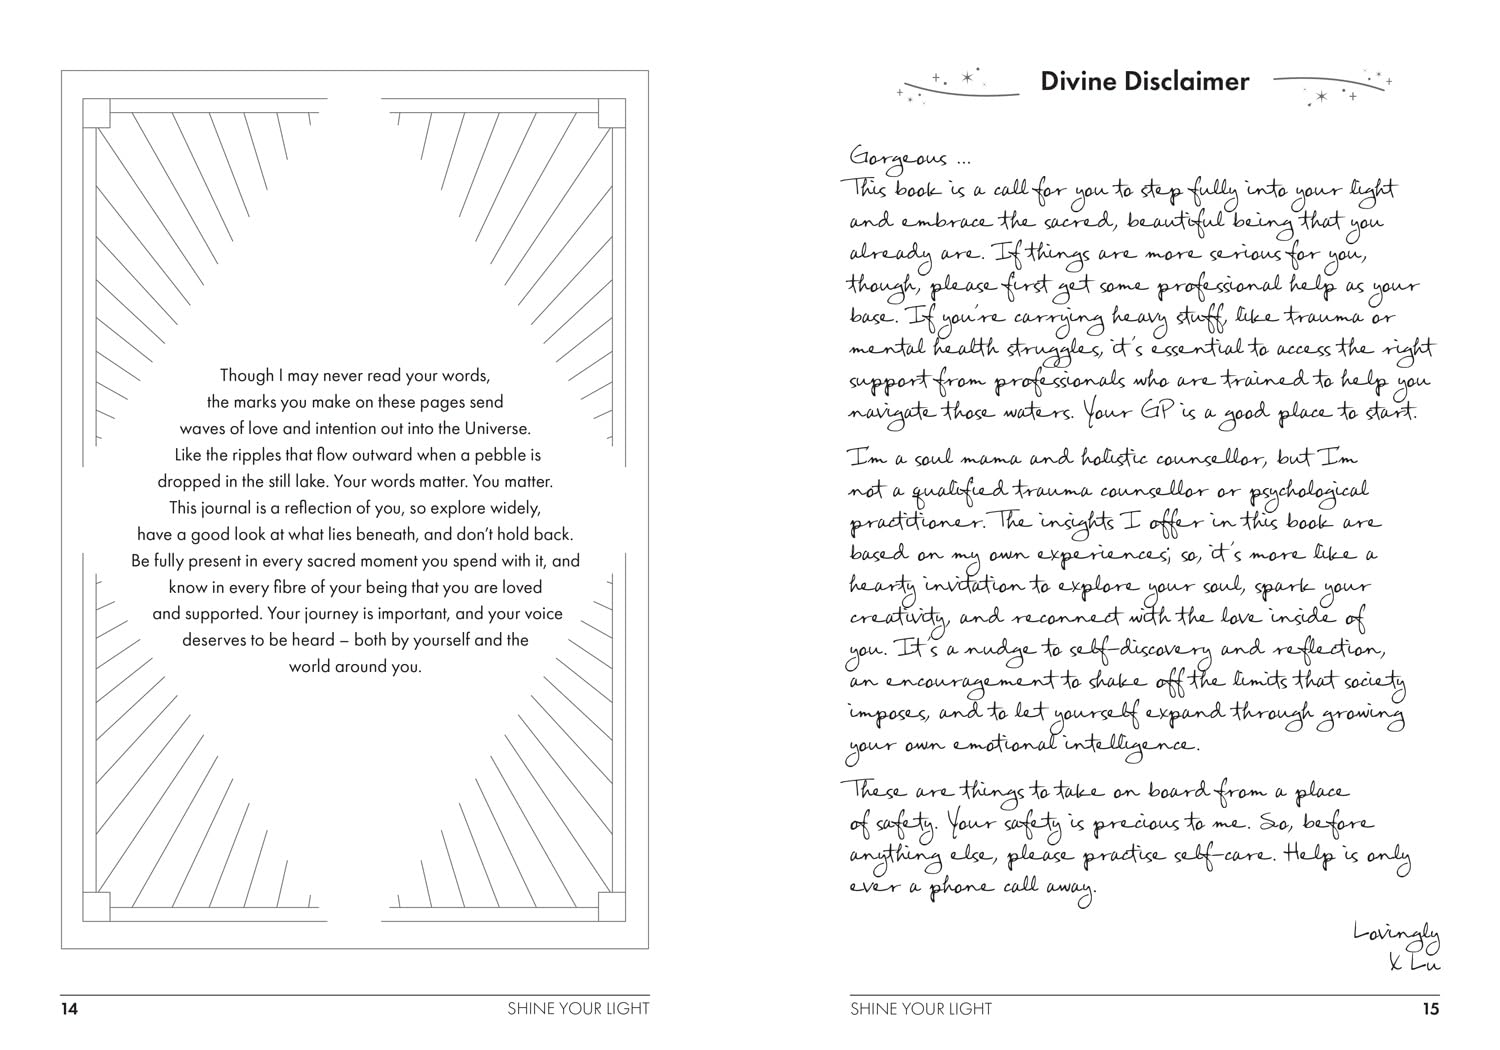 Though I may never read your words,
the marks you make on these pages send
waves of love and intention out into the Universe.
Like the ripples that flow outward when a pebble is
dropped in the still lake. Your words matter. You matter.
This journal is a reflection of you, so explore widely,
have a good look at what lies beneath, and don't hold back.
Be fully present in every sacred moment you spend with it, and
know in every fibre of your being that you are loved
and supported. Your journey is important, and your voice
deserves to be heard – both by yourself and the
world around you.
14
SHINE YOUR LIGHT
Divine Disclaimer
Gorgeous ...
This book is a call for you to step fully into your light
and embrace the sacred, beautiful being that you
already are. If things are more serious for you,
though, please first get some professional help as your
base. If you're carrying heavy stuff, like trauma or
mental health struggles, it's essential to access the right
support from professionals who are trained to help you
navigate those waters. Your GP is a good place to start.
I'm a soul mama and holistic counsellor, but I'm
not a qualified trauma counsellor or psychological
practitioner. The insights I offer in this book are
based on my own experiences; so, it's more like a
hearty invitation to explore your soul, spark your
creativity, and reconnect with the love inside of
you. It's a nudge to self-discovery and reflection,
an encouragement to shake off the limits that society
imposes, and to let yourself expand through growing
your own emotional intelligence.
These are things to take on board from a place
of safety. Your safety is precious to me. So, before
anything else, please practise self-care. Help is only
ever a phone call away.
Lovingly
X Lu
SHINE YOUR LIGHT
15